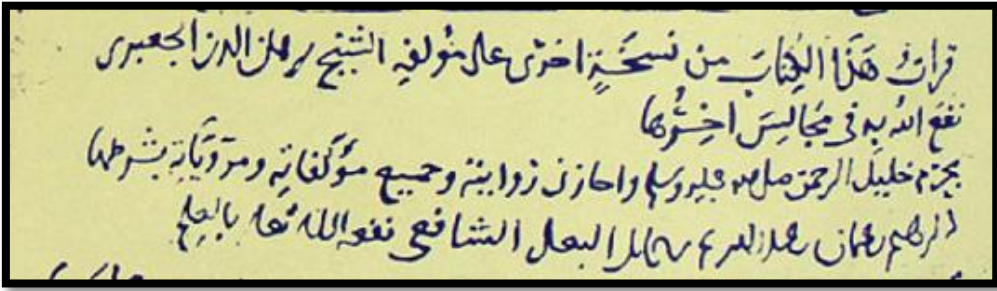 قرات هَذَا الكِتابَ من نسخَةٍ اخرى على مؤلفِهِ الشيخ برهان الدين الجعبرى
نفعَ اللهُ بِهِ فى مجَالِسَ اخِرُهَا
بحرَم خليل الرحمن صلى الله عليه وسلم واجازنى روايته وجميع مؤلفاتِهِ ومروَيَّاتِهِ بشرطها
البعلى الشافعى نفعه الله تعا بالعِلمِ